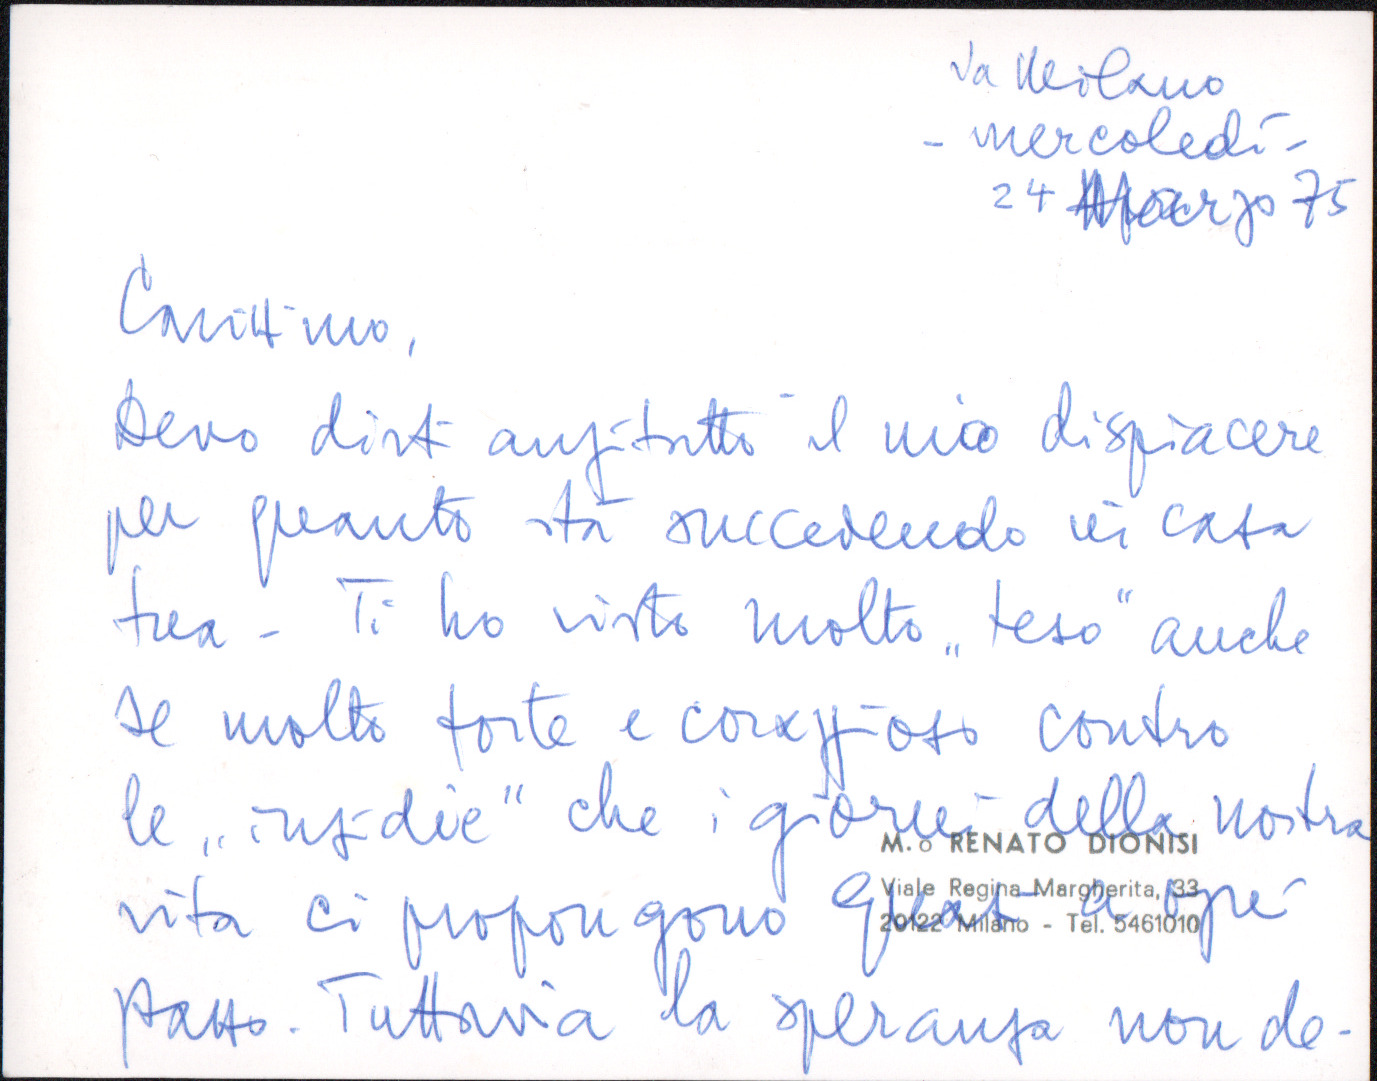 da Milano
- mercoledì -
24 Marzo 75
Carissimo,
Devo dirti anzitutto il mio dispiacere
per quanto stà succedendo in casa
tua - Ti ho visto molto „teso“ anche
se molto forte e coraggioso contro
le „insidie“ che i giorni della nostra
vita ci propongono quasi a ogni
passo. Tuttavia la speranza non de-
M.o RENATO DIONISI
Viale Regina Margherita, 33
20122 Milano - Tel. 5461010